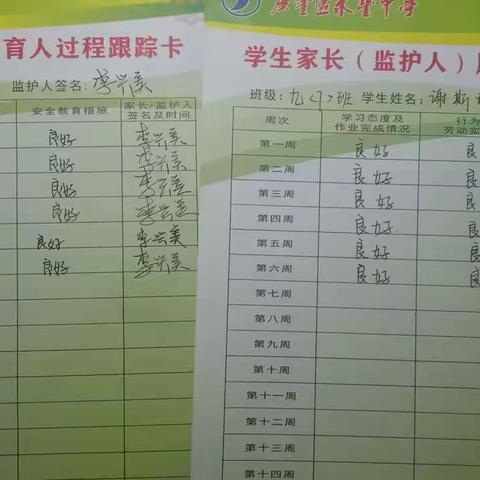 育人过程跟踪卡
监护人签名: 李兴美
安全教育措施 家长/监护人签名及时间
良好 李兴美
良好 李兴美
良好 李兴美
良好 李兴美
良好 李兴美
良好 李兴美
中学
学生家长（监护人）
班级: 九(7)班 学生姓名: 谢斯
周次 学习态度及作业完成情况 行为 劳动实
第一周 良好 良
第二周 良好 良
第三周 良好 良
第四周 良好 良
第五周 良好 良
第六周 良好 良
第七周
第八周
第九周
第十周
第十一周
第十二周
第十三周
第十四周